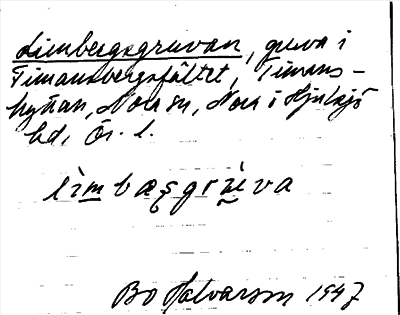 Limbergsgruvan, gruva i
Timansbergsfältet, Timans-
hyttan, Nora sn, Nora i Hjulsjö
hd, Ör. l.
Bo Halvarson 1947